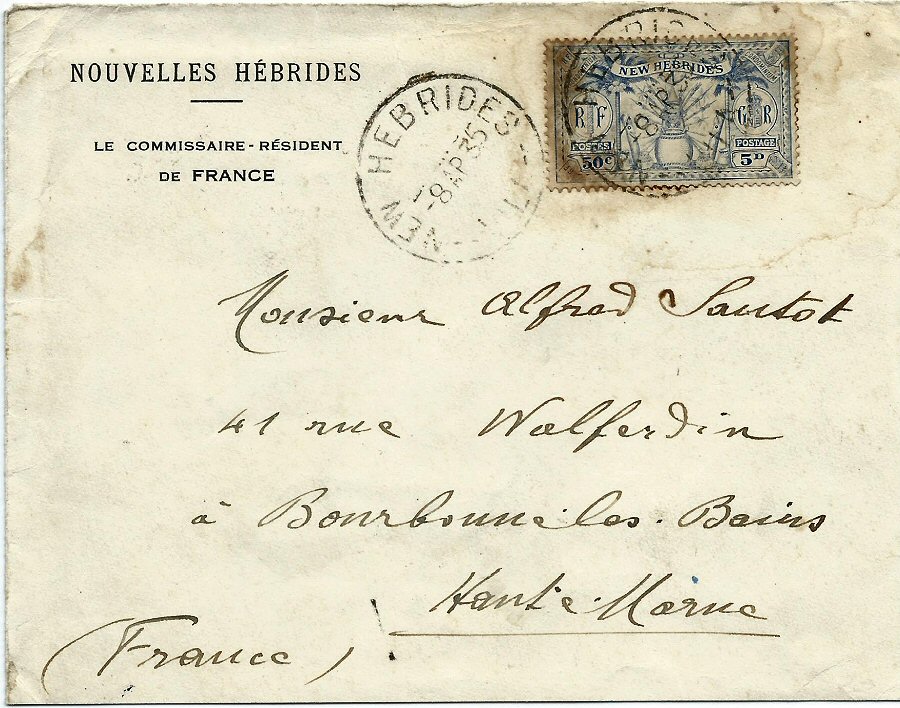 NOUVELLES HÉBRIDES
LE COMMISSAIRE-RÉSIDENT
DE FRANCE
NEW HEBRIDES
8 AP 35
NEW HEBRIDES
RF
GR
POSTES
POSTAGE
50c
5D
HEBRIDES
Monsieur Alfred Sautot
41 rue Walferdin
à Bourbonne les. Bains
Haute Marne
(France)